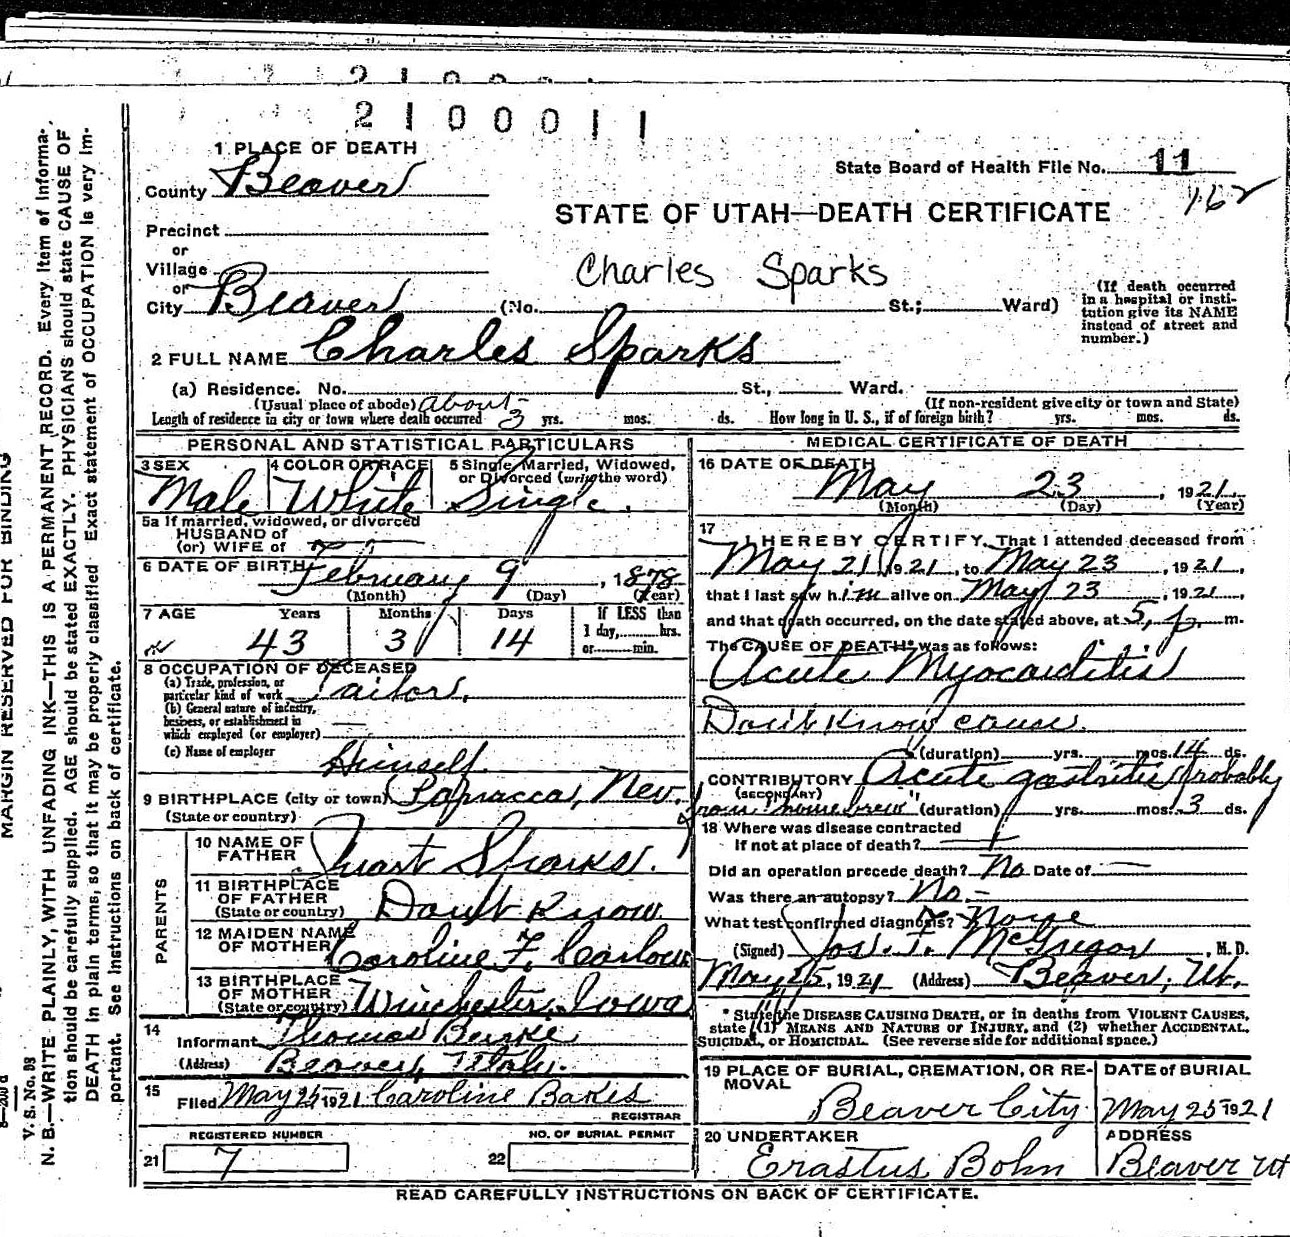 2100011
1 PLACE OF DEATH
County Beaver
State Board of Health File No. 11
162
STATE OF UTAH—DEATH CERTIFICATE
Precinct
or
Village
or
City Beaver (No. St.; Ward)
Charles Sparks
(If death occurred in a hospital or insti-
tution give its NAME
instead of street and
number.)
2 FULL NAME Charles Sparks
(a) Residence. No. St., Ward.
(Usual place of abode) (If non-resident give city or town and State)
Length of residence in city or town where death occurred about 3 yrs. mos. ds. How long in U. S., if of foreign birth? yrs. mos. ds.
PERSONAL AND STATISTICAL PARTICULARS
3 SEX Male
4 COLOR OR RACE White
5 Single, Married, Widowed,
or Divorced (write the word)
Single.
5a If married, widowed, or divorced
HUSBAND of
(or) WIFE of
6 DATE OF BIRTH February 9, 1878
(Month) (Day) (Year)
7 AGE Years Months Days If LESS than
1 day, hrs.
or min.
43 3 14
8 OCCUPATION OF DECEASED
(a) Trade, profession, or
particular kind of work Tailor.
(b) General nature of industry,
business, or establishment in
which employed (or employer) —
(c) Name of employer Himself.
9 BIRTHPLACE (city or town) Nev.
(State or country)
PARENTS
10 NAME OF
FATHER Sparks.
11 BIRTHPLACE
OF FATHER
(State or country) Don't Know.
12 MAIDEN NAME
OF MOTHER Caroline F.
13 BIRTHPLACE
OF MOTHER
(State or country) Winchester, Iowa
14
Informant Thomas Burke
(Address) Beaver, Utah.
15
Filed May 25 1921 Caroline Bakes
REGISTRAR
REGISTERED NUMBER
21 7
NO. OF BURIAL PERMIT
22
MEDICAL CERTIFICATE OF DEATH
16 DATE OF DEATH
May 23, 1921.
(Month) (Day) (Year)
17
I HEREBY CERTIFY, That I attended deceased from
May 21, 1921, to May 23, 1921,
that I last saw him alive on May 23, 1921,
and that death occurred, on the date stated above, at 5, p. m.
The CAUSE OF DEATH* was as follows:
Acute Myocarditis
Don't Know cause.
(duration) yrs. mos. 14 ds.
CONTRIBUTORY Acute gastritis, probably
(SECONDARY)
from "home brew" (duration) yrs. mos. 3 ds.
18 Where was disease contracted
If not at place of death?
Did an operation precede death? No Date of —
Was there an autopsy? No.
What test confirmed diagnosis? None
(Signed) Jos. T. McGregor, M. D.
May 25, 1921 (Address) Beaver, Ut.
* State the DISEASE CAUSING DEATH, or in deaths from VIOLENT CAUSES,
state (1) MEANS AND NATURE OF INJURY, and (2) whether ACCIDENTAL,
SUICIDAL, or HOMICIDAL. (See reverse side for additional space.)
19 PLACE OF BURIAL, CREMATION, OR RE-
MOVAL
Beaver City
DATE of BURIAL
May 25 1921
20 UNDERTAKER
Erastus Bohn
ADDRESS
Beaver Ut
READ CAREFULLY INSTRUCTIONS ON BACK OF CERTIFICATE.
MARGIN RESERVED FOR BINDING
V. S. No. 98
N. B.—WRITE PLAINLY, WITH UNFADING INK—THIS IS A PERMANENT RECORD. Every item of informa-
tion should be carefully supplied. AGE should be stated EXACTLY. PHYSICIANS should state CAUSE OF
DEATH in plain terms, so that it may be properly classified. Exact statement of OCCUPATION is very im-
portant. See instructions on back of certificate.